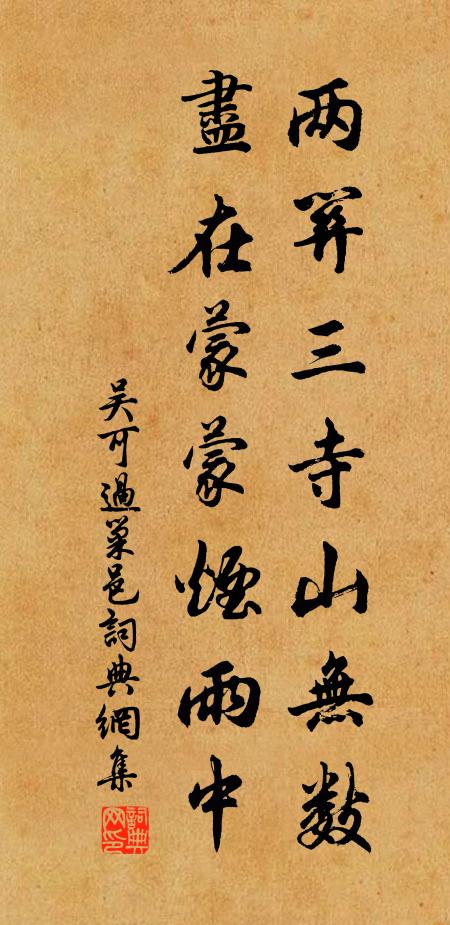 两羿三寺山無數
盡在蒙蒙煙雨中
吳可過巢邑詞典網集
詞典网印